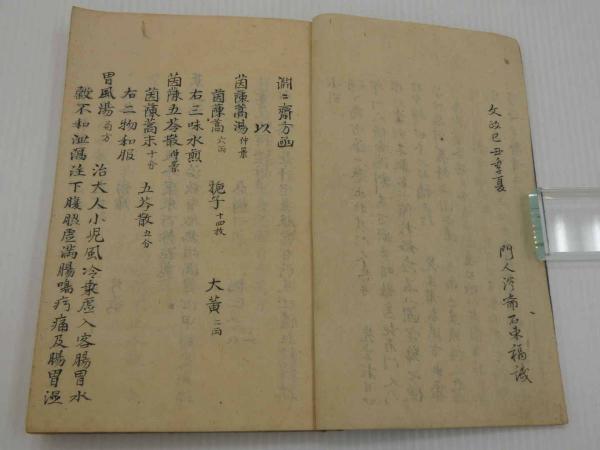 文政己丑季夏
門人 石東福識
淵二齋方凾
以
茵蔯蒿湯 仲景
茵蔯蒿 六両 梔子 十四枚 大黄 二両
右三味水煎
茵蔯五苓散 仲景
茵蔯蒿末 十分 五苓散 五分
右二物和服
胃風湯 局方 治大人小児風冷乗虚入客腸胃水
穀不和泄瀉注下腹脹虚満腸鳴㽱痛及腸胃湿